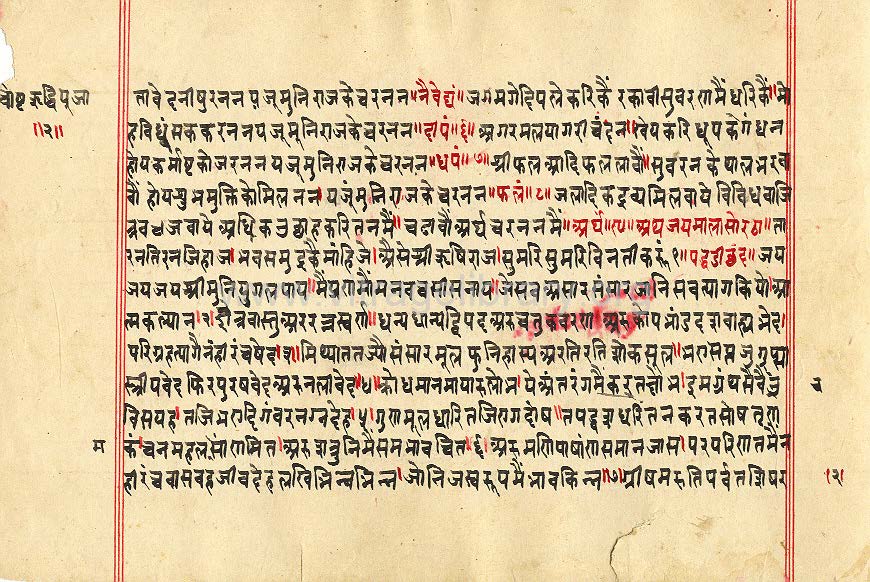 तावेदनीषुरननप्रजूमुनिराजकेचरनन॥नैवेद्यं॥जगमगेदिपलेकरिकैं रकाबीसुवरणमैंधरिकैं॥मो
हविध्वंसककरननयजूमुनिराजकेचरनन॥दीपं॥६॥अगरमलयागरीचंदन॥खेयकरिधूपकेगंधन
होयकर्माष्टकोजरननयजूमुनिराजकेचरनन॥धूपं॥७॥श्रीफलआदिफलल्यावौं॥सुवरनकेथालभरवा
वौं होयशुभमुक्तिकोमिलनन॥यजूंमुनिराजकेचरनन॥फलं॥८॥जलादिकद्रव्यमिलवाये विविधवाजि
त्रबजवाये अधिकउछाहकरितनमैं॥चढावौंअर्घचरननमैं॥अर्घ॥९॥अथजयमालासोरठा॥ता
रनतिरनजिहाज॥भवसमुद्रकैमांहिजे॥ऐसेश्रीऋषिराज॥सुमरिसुमरिविनतीकरूं१॥पद्धडीछंद॥जय
जयजयश्रीमुनियुगलपाय॥मैंप्रणमौंमनवचसीसनाय॥येसबअसारसंसारजानि सबत्यागकियोआ
त्मकल्यान॥२॥क्षेत्रवास्तुअररत्नस्वर्ण॥धन्यधान्यद्विपदअरुचतुकचरण॥अरुकोपभांडदशबाह्यभेद॥
परिग्रहत्यागेनहीरंचषेद॥३॥मिथ्याततज्यौसंसारमूल फुनिहास्यअरतिरतिशोकसूल॥भयसप्तजुगुप्सा
स्त्रीयवेद फिरपुरषवेदअरुनलीवेद॥४॥क्रोधमानमायारुलोभ॥येअंतरंगमैंकरतक्षोभ॥इमग्रंथसबै
विसयह॥तजिभयेदिगंवरनग्नदेह॥५॥गुणमूलधारितजिरागदोष॥तपद्वादशधरितनकरतसोष तृण
कंचनमहलसमानमित॥अरुशत्रुनिमैसमभावचित॥६॥अरुमणिपाषांणसमानजास॥परपरिणतमैन
हीरंचवास वहजीवदेहलखिभिन्नभिन्न॥जोनिजस्वरूपमैंभावकिन्न॥७॥ग्रीषमरुतिपर्वतशिषर
॥२॥
म
।२।